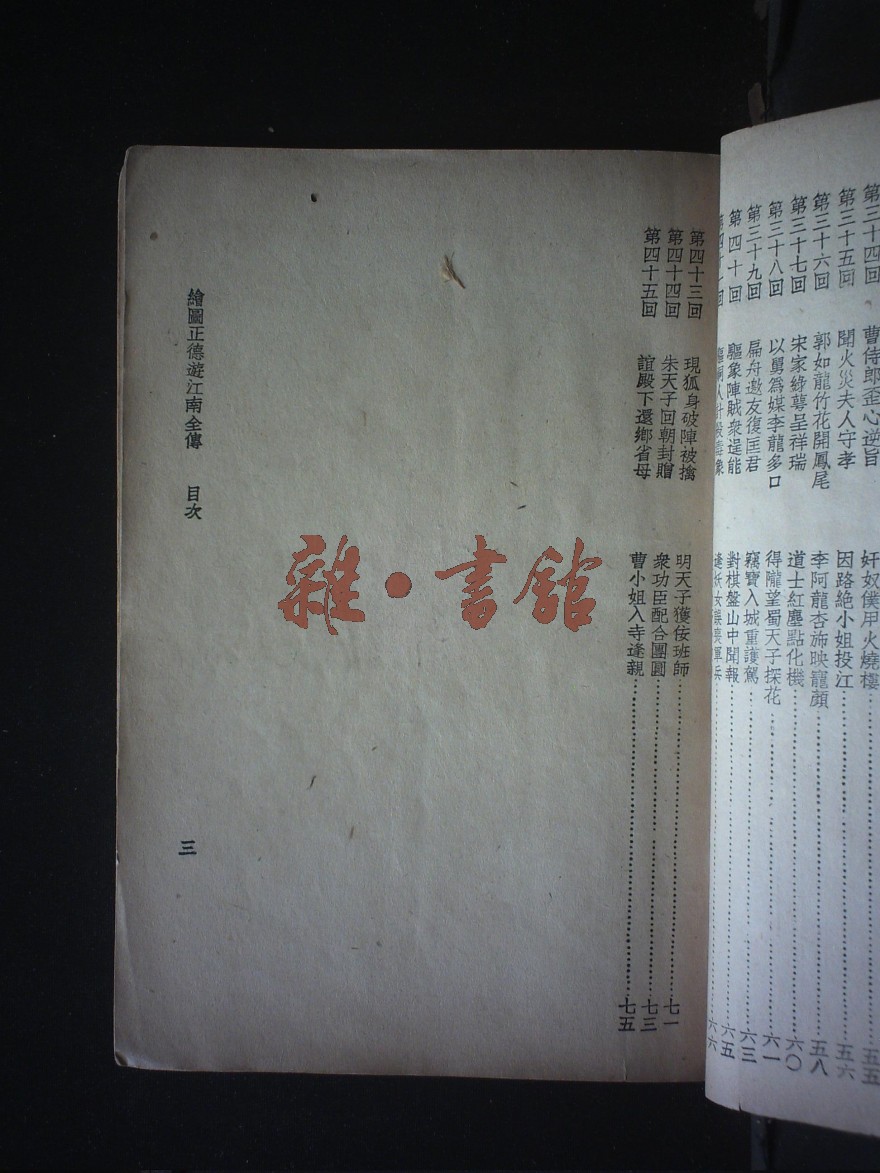 第三十四回 曹侍郎歪心逆旨 奸奴僕用火燒樓 五五
第三十五回 聞火災夫人守孝 因路絕小姐投江 五六
第三十六回 郭如龍竹花開鳳尾 李阿龍杏旆映寵顏 五八
第三十七回 宋家綠萼呈祥瑞 道士紅塵點化機 六〇
第三十八回 以舅爲媒李龍多口 得隴望蜀天子探花 六一
第三十九回 扁舟邀友復匡君 竊寶入城重護駕 六三
第四十回 驅象陣賊衆逞能 對棋盤山中聞報 六五
第四十一回 六六
第四十三回 現狐身破陣被擒 明天子獲佞班師 七一
第四十四回 朱天子回朝封贈 衆功臣配合團圓 七三
第四十五回 誼殿下還鄉省母 曹小姐入寺逢親 七五
繪圖正德遊江南全傳 目次
三
雜·書館